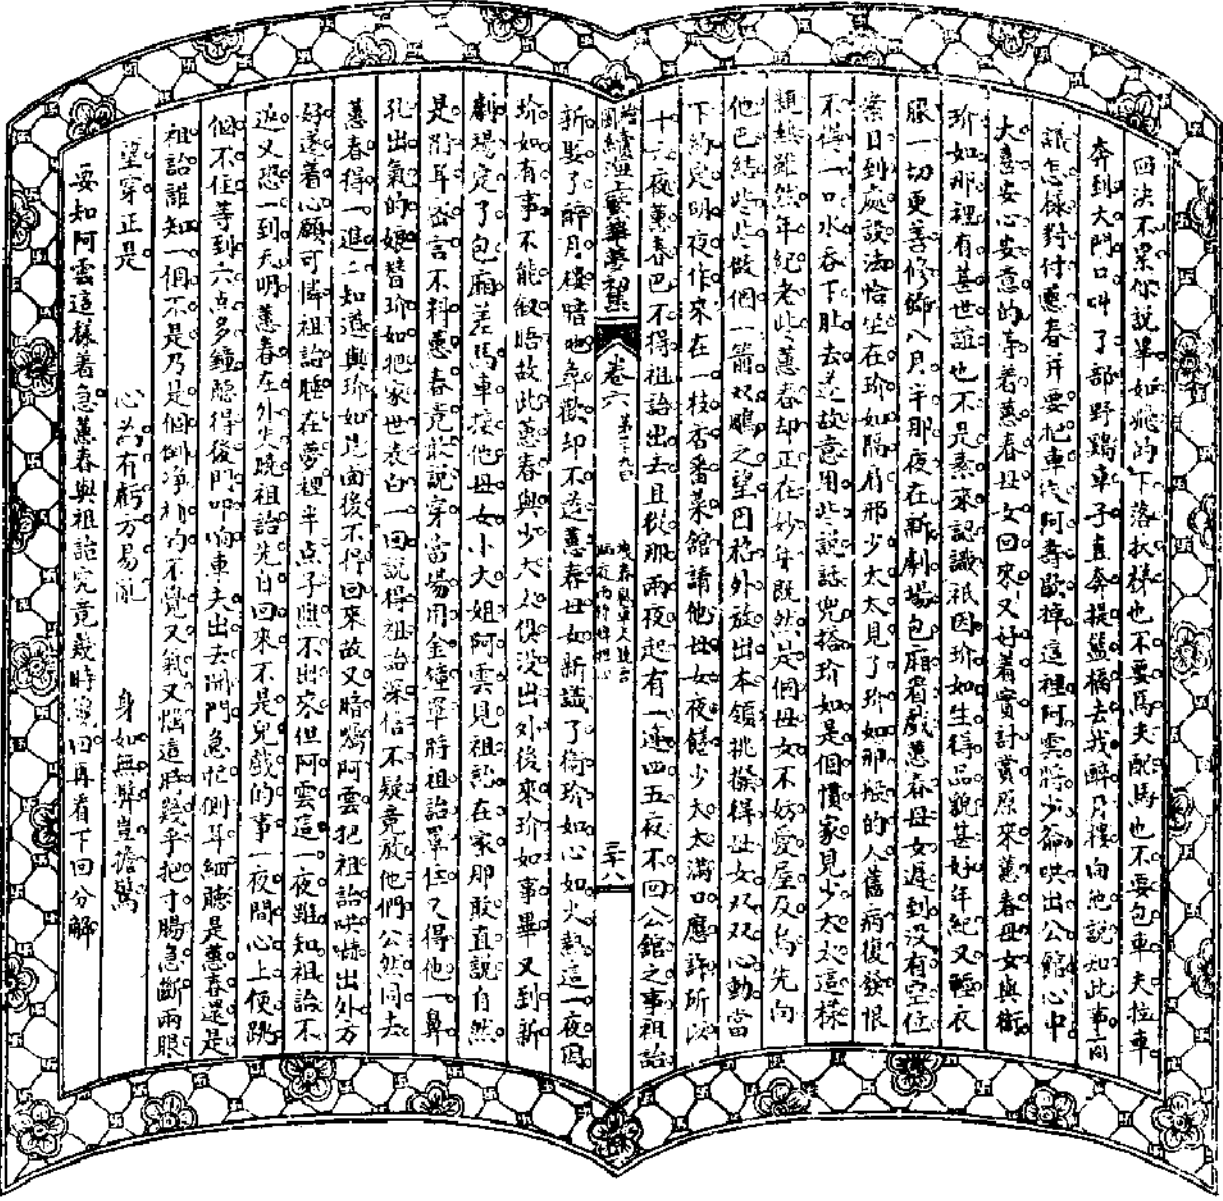 四決不累你說畢如飛的下落扶梯也不要馬夫配馬也不要包車夫拉車
奔到大門口叫了部野鷄車子直奔提籃橋去我醉月樓向他說知此事商
議怎樣對付蕙春并要把車伕阿壽歇掉這裡阿雲將少爺哄出公館心中
大喜安心安意的等着蕙春母女回來又好着實計賞原來蕙春母女與衛
玠如那裡有甚世誼也不是素來認識祇因玠如生得品貌甚好年紀又輕衣
服一切更善修飾八月半那夜在新劇場包廂看戲蕙春母女遲到没有空位
案目到處設法恰坐在玠如隔廂邢少太太見了玠如那樣的人舊病復發恨
不得一口水吞下肚去遂故意用些說話兜搭玠如是個慣家見少太太這樣
親熱雖然年紀老些蕙春却正在妙年既然是個母女不妨愛屋及烏先向
他巴結些些做個一箭双鵰之望因格外放出本領挑撥得母女双双心動當
下約定明夜作東在一枝香番菜館請他母女夜饍少太太滿口應許所以
十六夜蕙春巴不得祖詒出去且從那兩夜起有一連四五夜不回公舘之事祖詒
繪圖續海上繁華夢初集 卷六 第三十九回 三十八
新娶了醉月樓暗地尋歡却不道蕙春母女新識了衛玠如心如火熱這一夜因
玠如有事不能叙晤故此蕙春與少太太俱没出外後來玠如事畢又到新
劇場定了包廂差馬車接他母女小大姐阿雲見祖詒在家那敢直說自然
是附耳密言不料蕙春竟敢說穿當場用金鐘罩將祖詒罩住又得他一鼻
孔出氣的娘替玠如把家世表白一回說得祖詒深信不疑竟放他們公然同去
蕙春得一進二知道與玠如見面後不得回來故又暗囑阿雲把祖詒哄嚇出外方
好遂着心願可憐祖詒睡在夢裡半点子興不出來但阿雲這一夜雖知祖詒不
返又恐一到天明蕙春在外失曉祖詒先自回來不是兒戲的事一夜間心上便跳
個不住等到六点多鐘聽得後門叩响車夫出去開門急忙側耳細聽是蕙春還是
祖詒誰知一個不是乃是個倒净桶的不覺又氣又惱這時幾乎把寸腸急斷兩眼
望穿正是
心為有虧方易亂 身如無弊豈憺驚
要知阿雲這樣着急蕙春與祖詒究竟幾時囘再看下回分解